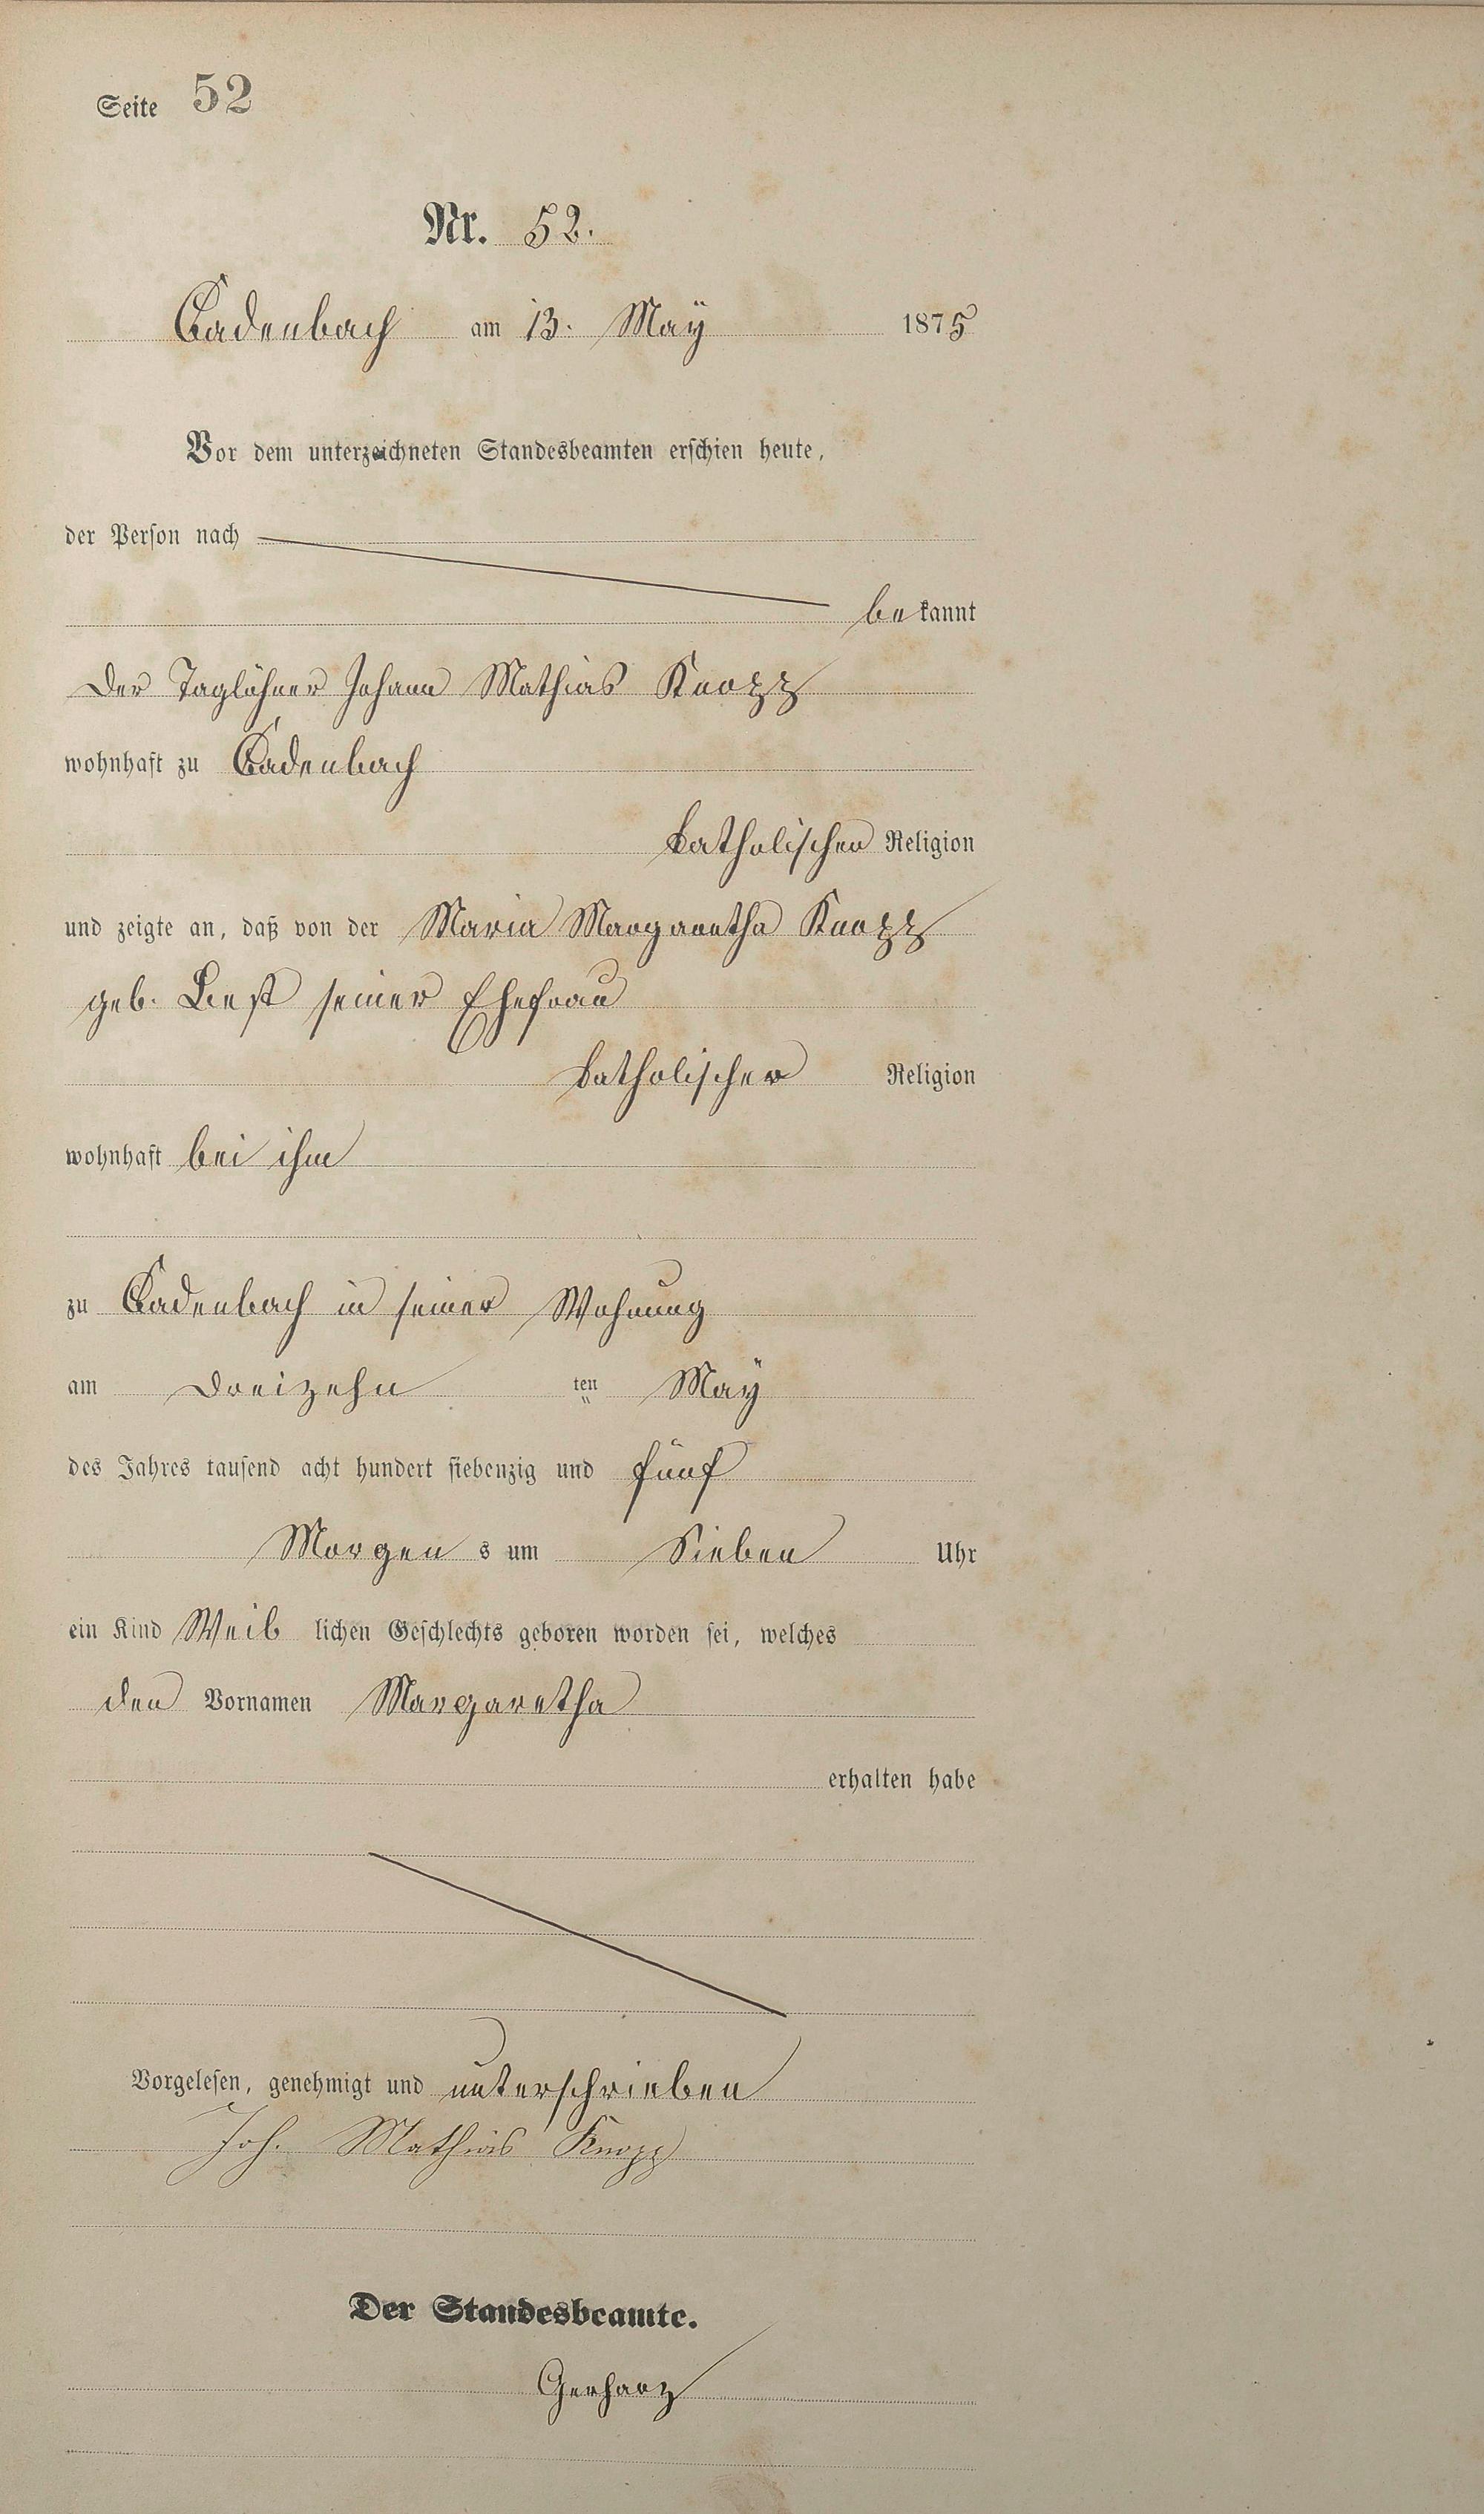 Seite 52
Nr. 52.
Cadenbach am 13. Maÿ 1875
Vor dem unterzeichneten Standesbeamten erschien heute,
der Person nach
bekannt
der Taglöhner Johann Mathias Knopp
wohnhaft zu Cadenbach
katholischer Religion
und zeigte an, daß von der Maria Margaretha Knopp
geb. Best seiner Ehefrau
katholischer Religion
wohnhaft bei ihm
zu Cadenbach in seiner Wohnung
am dreizehn ten Maÿ
des Jahres tausend acht hundert siebenzig und fünf
Morgen s um Sieben Uhr
ein Kind Weib lichen Geschlechts geboren worden sei, welches
den Vornamen Margaretha
erhalten habe
Vorgelesen, genehmigt und unterschrieben
Joh. Mathias Knopp
Der Standesbeamte.
Gerharz